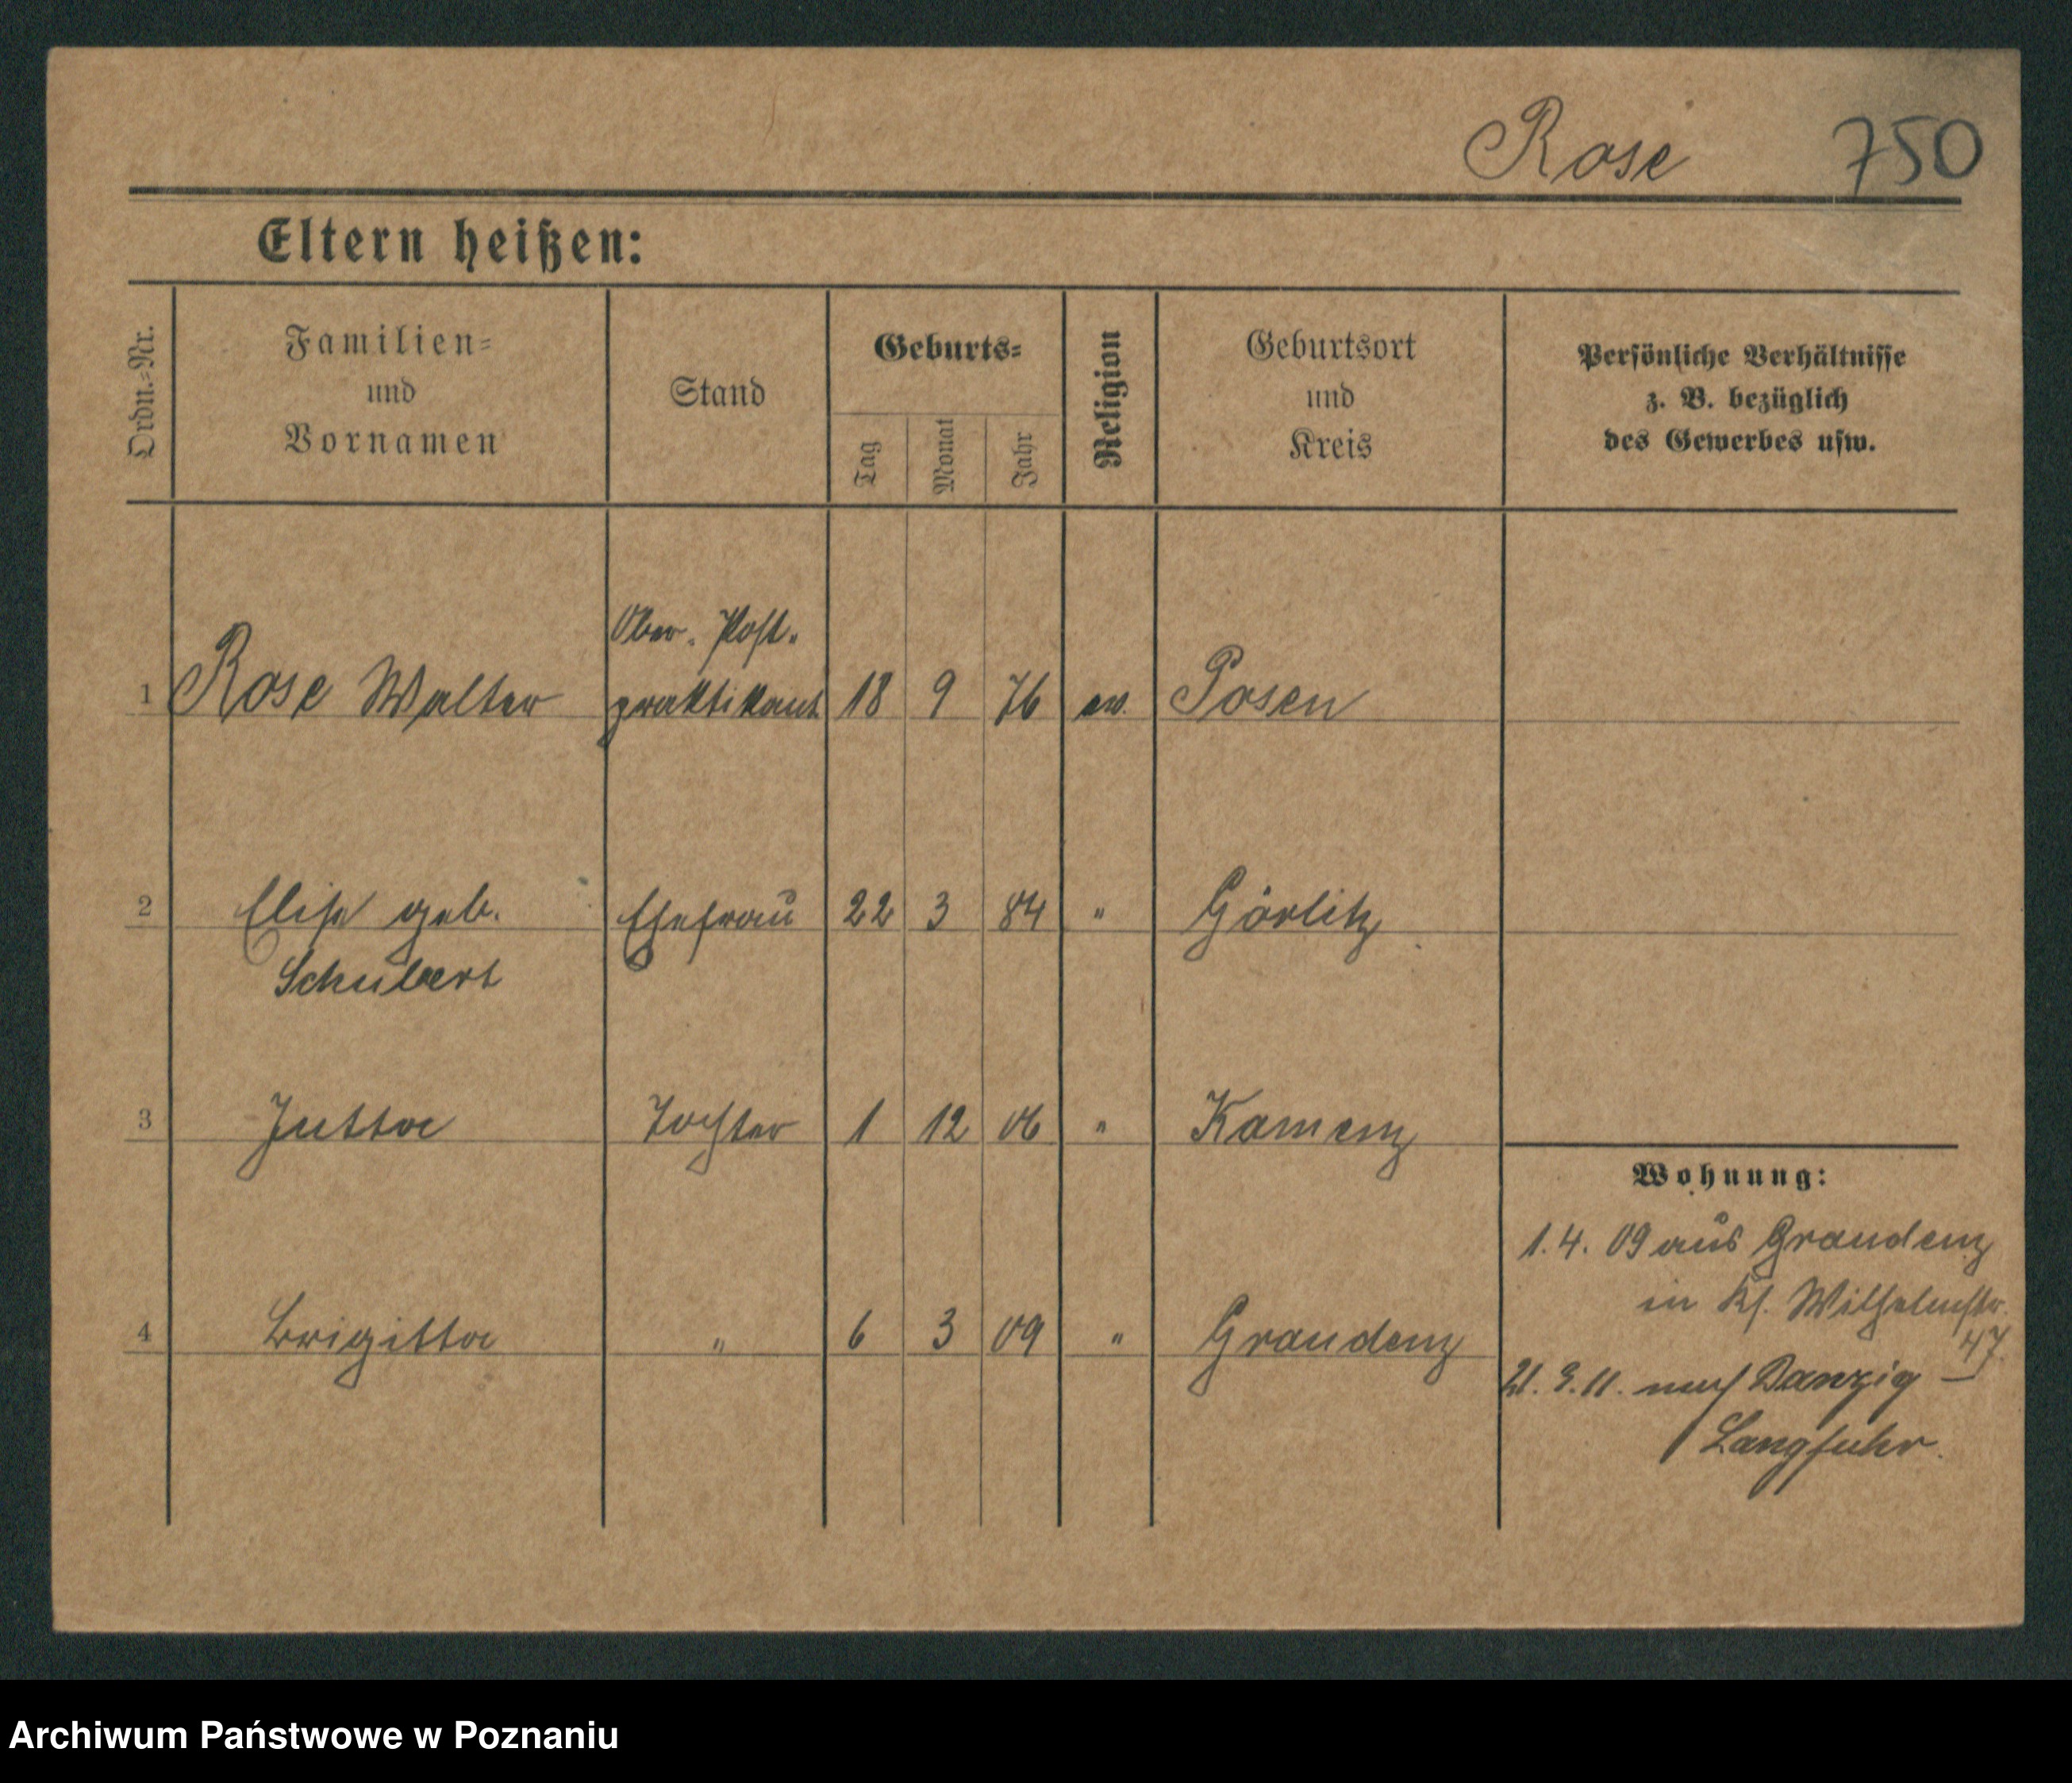 Rose 750
Eltern heißen:
Ordn.-Nr.
Familien-
und
Vornamen
Stand
Geburts-
Tag
Monat
Jahr
Religion
Geburtsort
und
Kreis
Persönliche Verhältnisse
z. B. bezüglich
des Gewerbes usw.
Ober-Post-
1 Rose Walter praktikant 18 9 76 ev. Posen
2 Elise geb. Ehefrau 22 3 84 " Görlitz
Schubert
3 Jutta Tochter 1 12 06 " Kamenz
Wohnung:
1. 4. 09 aus Graudenz
in Wilhelmstr.
47
4 Brigitta " 6 3 09 " Graudenz
21. 3. 11. nach Danzig
Langfuhr.
Archiwum Państwowe w Poznaniu